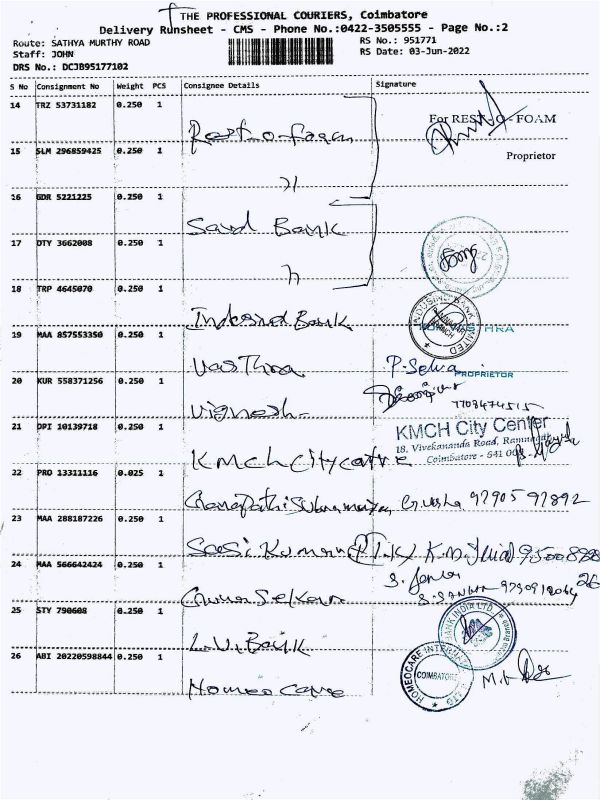 THE PROFESSIONAL COURIERS, Coimbatore
Delivery Runsheet - CMS - Phone No.:0422-3505555 - Page No.:2
Route: SATHYA MURTHY ROAD
Staff: JOHN
DRS No.: DCJB95177102
RS No.: 951771
RS Date: 03-Jun-2022
S No Consignment No Weight PCS Consignee Details Signature
14 TRZ 53731182 0.250 1
Rest-o-foam
For REST-O-FOAM
Proprietor
15 SLM 296859425 0.250 1
16 GDR 5221225 0.250 1
Bank
17 DTY 3662008 0.250 1
18 TRP 4645070 0.250 1
Indusind Bank
INDUSIND BANK LIMITED
19 MAA 857553350 0.250 1
VasThra
P. Selva
PROPRIETOR
20 KUR 558371256 0.250 1
Vignesh
7708474515
21 DPI 10139718 0.250 1
KMCH City centre
KMCH City Center
18, Vivekananda Road, Ramnagar
Coimbatore - 641 00
22 PRO 13311116 0.025 1
97905 97892
23 MAA 288187226 0.250 1
Sasi Kumar
24 MAA 566642424 0.250 1
25 STY 790608 0.250 1
L.V. Bank
BANK INDIA LTD
26 ABI 20220598844 0.250 1
Homeo care
HOMEOCARE INTERNA
COIMBATORE